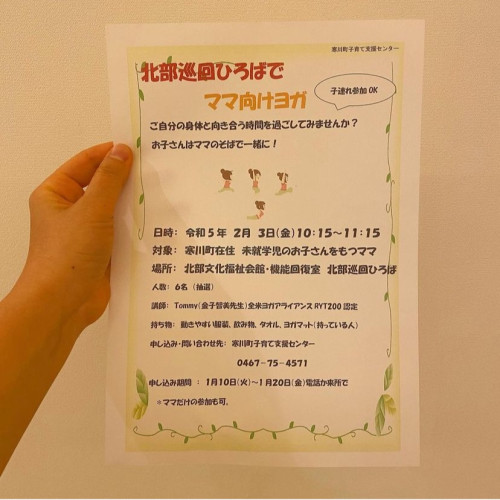 寒川町子育て支援センター
北部巡回ひろばで
ママ向けヨガ
子連れ参加 OK
ご自分の身体と向き合う時間を過ごしてみませんか？
お子さんはママのそばで一緒に！
日時： 令和５年 ２月 ３日（金）１０：１５～１１：１５
対象： 寒川町在住 未就学児のお子さんをもつママ
場所： 北部文化福祉会館・機能回復室 北部巡回ひろば
人数： ６名 （抽選）
講師： Tommy（金子智美先生）全米ヨガアライアンス RYT200 認定
持ち物： 動きやすい服装、飲み物、タオル、ヨガマット（持っている人）
申し込み・問い合わせ先： 寒川町子育て支援センター
０４６７－７５－４５７１
申し込み期間 ： １月１０日（火）～１月２０日（金）電話か来所で
＊ママだけの参加も可。